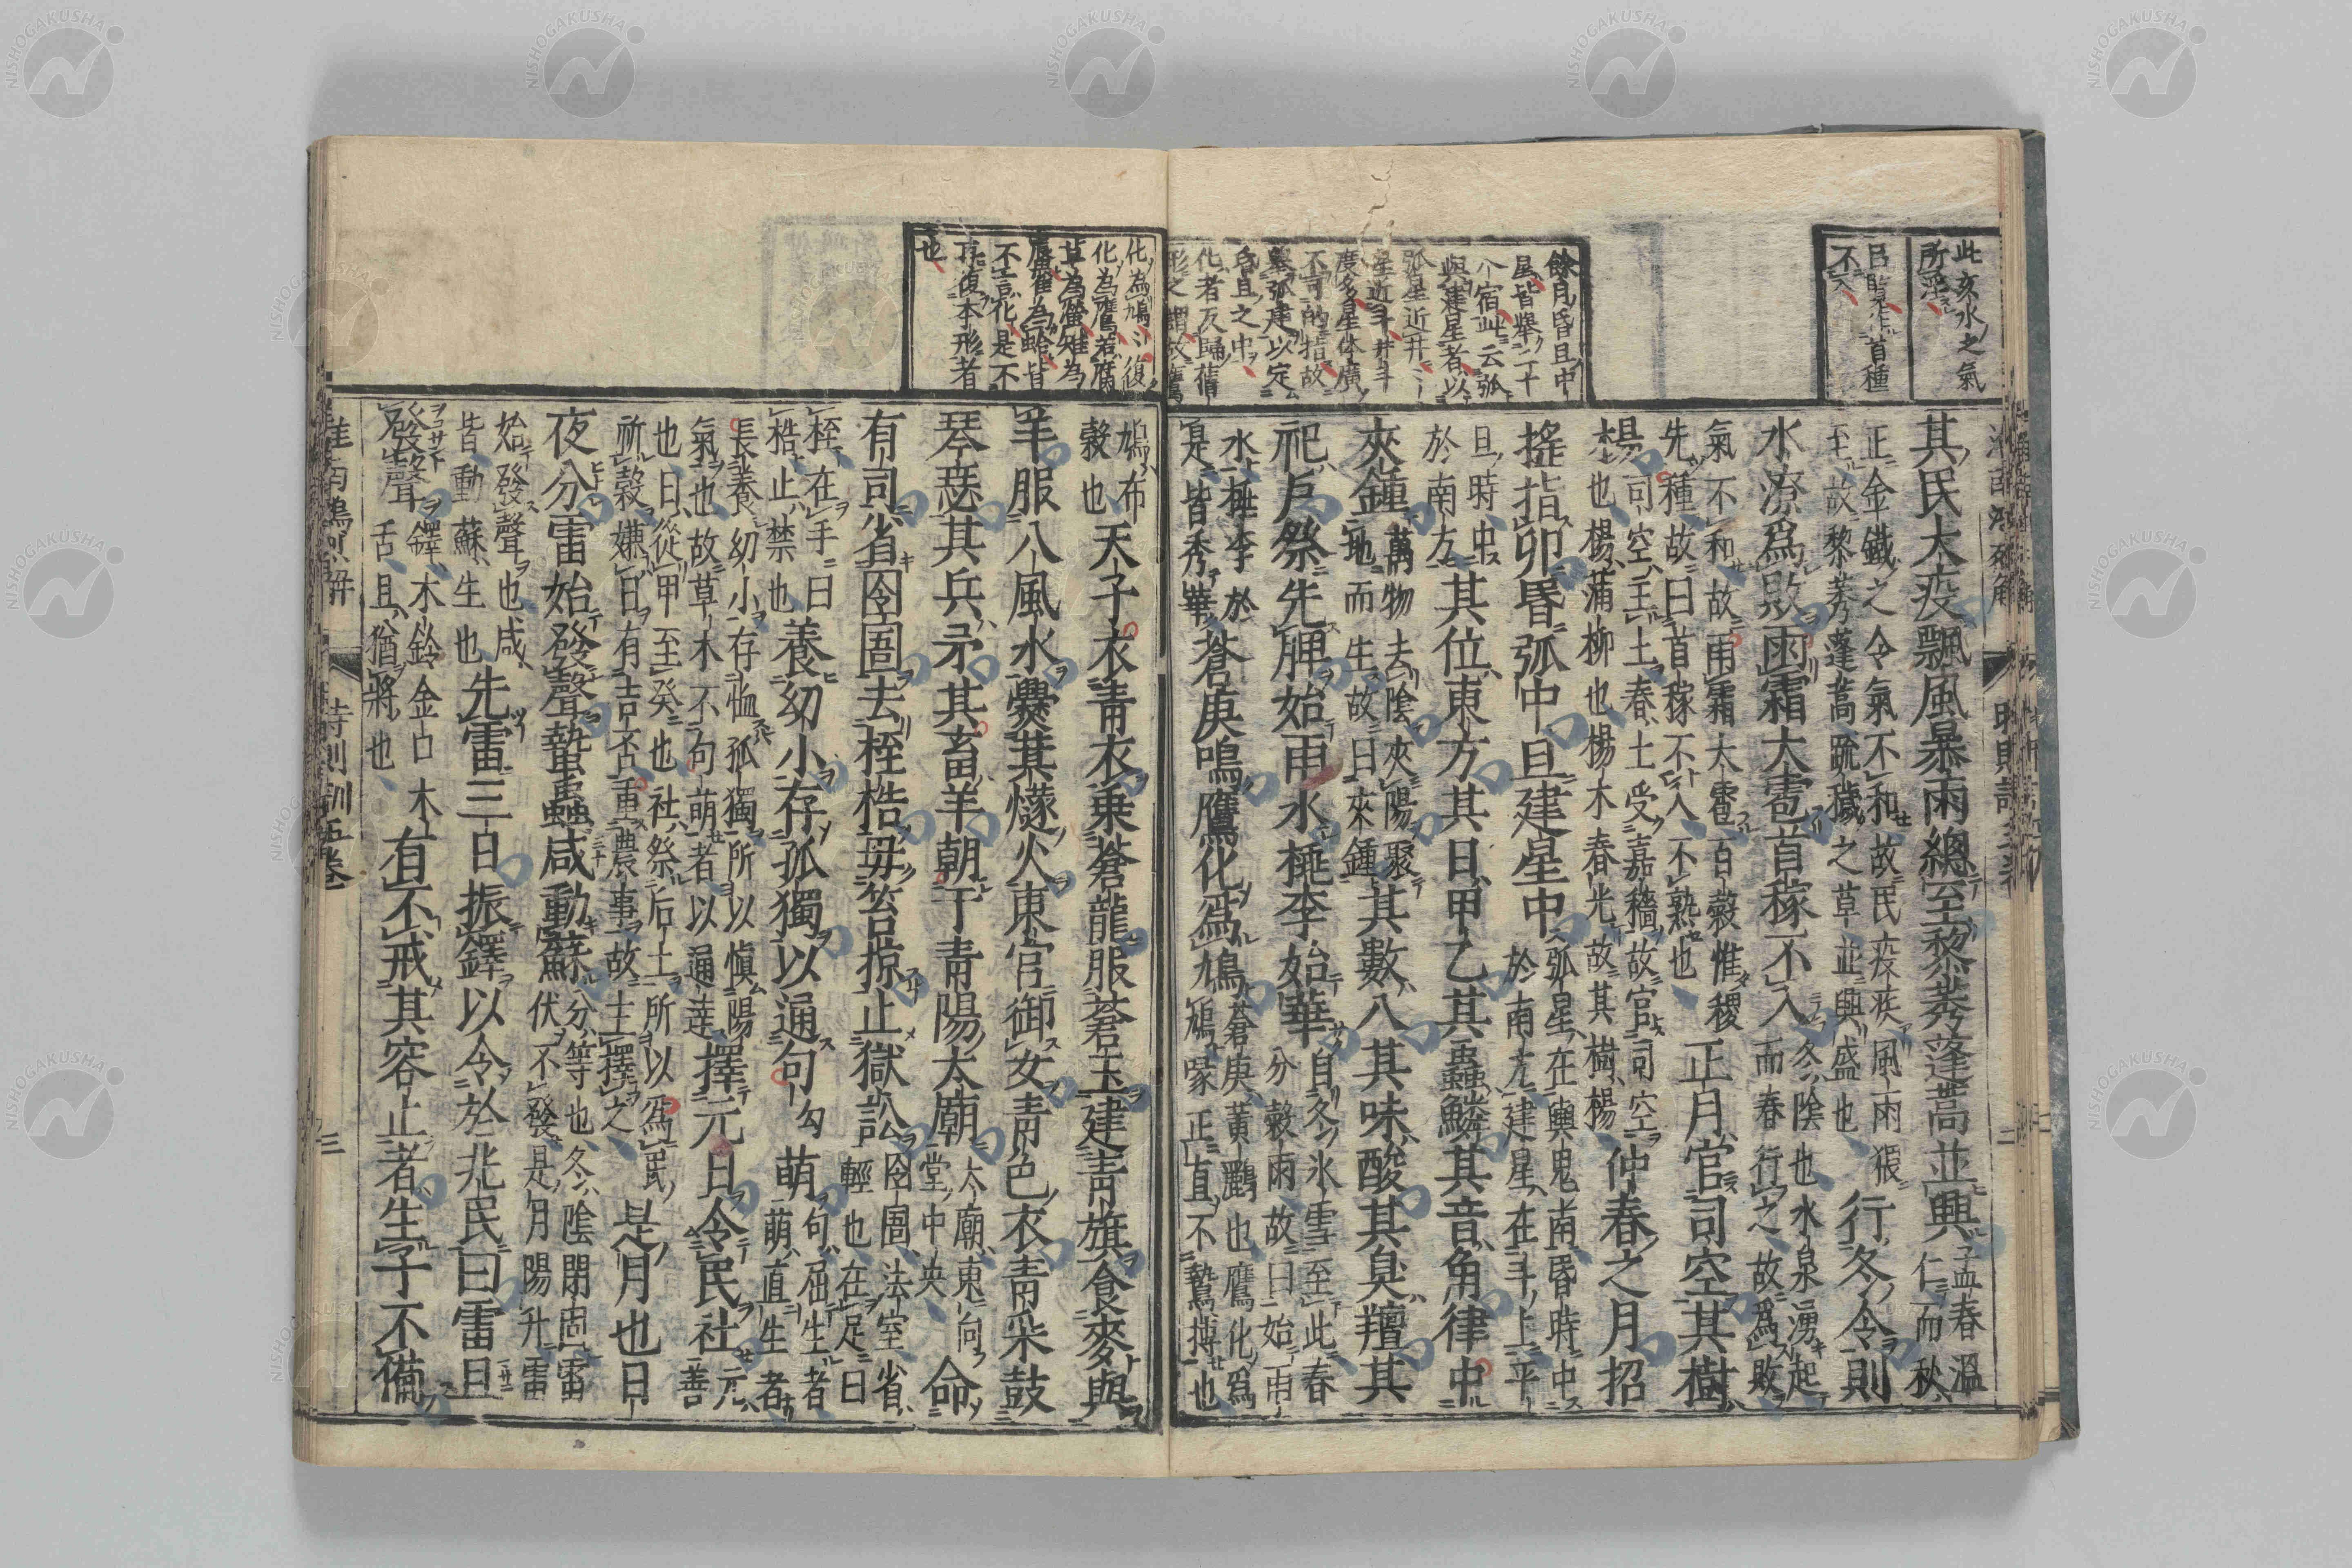 此亥水之氣
所淫
呂覽作首種
不入
餘月昏旦中
星皆舉二十
八宿此云弧
與建星者以
弧星近井建
星近斗井斗
度多星体廣
不可的指故
舉弧建以定
昏旦之中
化者反歸舊
形之謂故鷹
其民大疫飄風暴雨總至黎莠蓬蒿並興孟春溫仁而秋
正金鐵之令氣不和故民疫疾風雨猥至故黎莠蓬蒿疏穢之草並興盛也行冬令則
水潦爲敗雨霜大雹首稼不入冬陰也水泉湧起而春行之故爲敗
氣不和故雨霜大雹百穀惟稷先種故曰首稼不入不熟也正月官司空其樹
楊司空主土春土受嘉穡故官司空也楊蒲柳也楊木春光故其樹楊仲春之月招
搖指卯昏弧中旦建星中弧星在輿鬼南昏時中於南方建星在斗上平
旦時中於南方其位東方其日甲乙其蟲鱗其音角律中
夾鍾萬物去陰夾陽聚地而生故曰夾鍾其數八其味酸其臭羶其
祀戶祭先脾始雨水桃李始華自冬冰雪至此春分穀雨故曰始雨
水桃李於是皆秀華蒼庚鳴鷹化爲鳩蒼庚黃鸝也鷹化爲鳩喙正直不鷙搏也
化為鳩鳩復
化為鷹若腐
草為螢雉為
蜃雀為蛤皆
不言化是不
再復本形者
也
鳩布穀也天子衣青衣乘蒼龍服蒼玉建青旗食麥與
羊服八風水爨萁燧火東宮御女青色衣青采鼓
琴瑟其兵矛其畜羊朝于青陽太廟太廟東向堂中央命
有司省囹圄去桎梏毋笞掠止獄訟囹圄法室省輕也在足曰
桎在手曰梏止禁也養幼小存孤獨以通句萌句屈生者萌直生者
長養幼小存恤孤獨所以愼陽氣也故草木不句萌者以通達擇元日令民社元善
也日從甲至癸也社祭后土所以爲民祈穀嫌日有吉否重農事故擇之是月也日
夜分雷始發聲蟄蟲咸動蘇分等也冬陰閉固雷伏不發是月陽升雷
始發聲也咸皆動蘇生也先雷三日振鐸以令於兆民曰雷且
發聲鐸木鈴金口木舌且猶將也有不戒其容止者生子不備
淮南鴻烈解
時則訓五卷
三